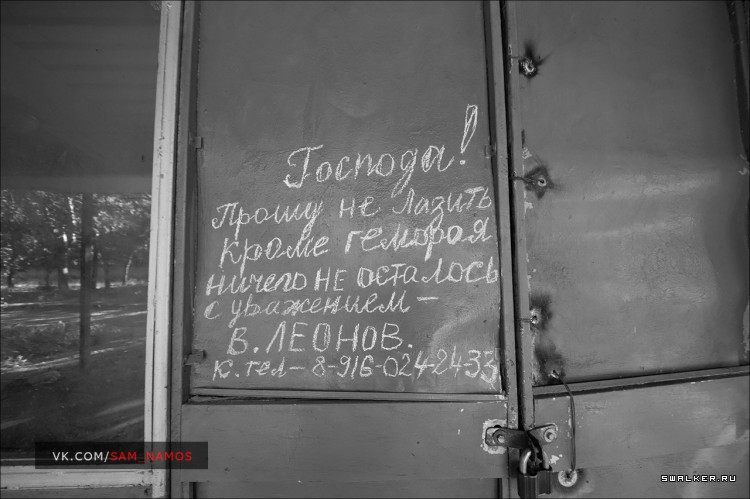 Господа!
Прошу не лазить
кроме геморая
ничего не осталось
с уважением –
В. ЛЕОНОВ.
к. тел – 8-916-024-24-33
VK.COM/SAM_NAMOS
SWALKER.RU